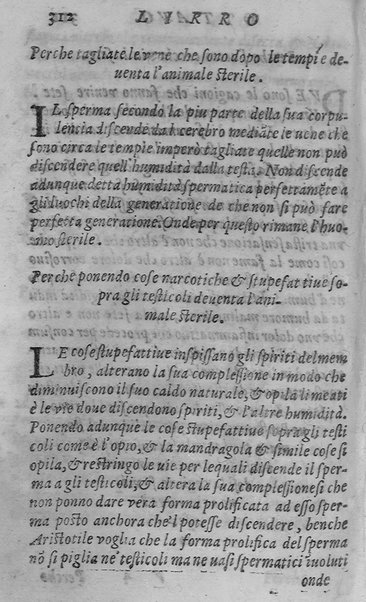 312 LIBRO
Perche tagliate le vene che sono dopo le tempie de-
uenta l'animale sterile.
IL sperma secondo la piu parte della sua corpu-
lentia discende dal cerebro mediãte le uene che
sono circa le tempie imperò tagliate quelle non può
discendere quell'humidità dalla testa. Non discẽde
adunque detta humidità spermatica perfettamẽte a
gli luochi della generatione de che non si può fare
perfetta generatione. Onde per questo rimane l'huo
mo sterile.
Perche ponendo cose narcotiche & stupefattiue so-
pra gli testicoli deuenta l'ani-
male sterile.
LE cose stupefattiue inspissano gli spiriti del mem
bro, alterano la sua complessione in modo che
diminuiscono il suo caldo naturale, & opila li meati
& le vie doue discendono spiriti, & l'altre humidità.
Ponendo adunque le cose stupefattiue sopra gli testi
coli come è l'opio, & la mandragola & simile cose si
opila, & restringo le uie per lequali discende il sper-
ma a gli testicoli, & altera la sua complessione si che
non ponno dare vera forma prolificata ad esso sper-
ma posto anchora che'l potesse discendere, benche
Aristotile voglia che la forma prolifica del sperma
nõ si piglia ne' testicoli ma ne uasi spermatici iuoluti
onde